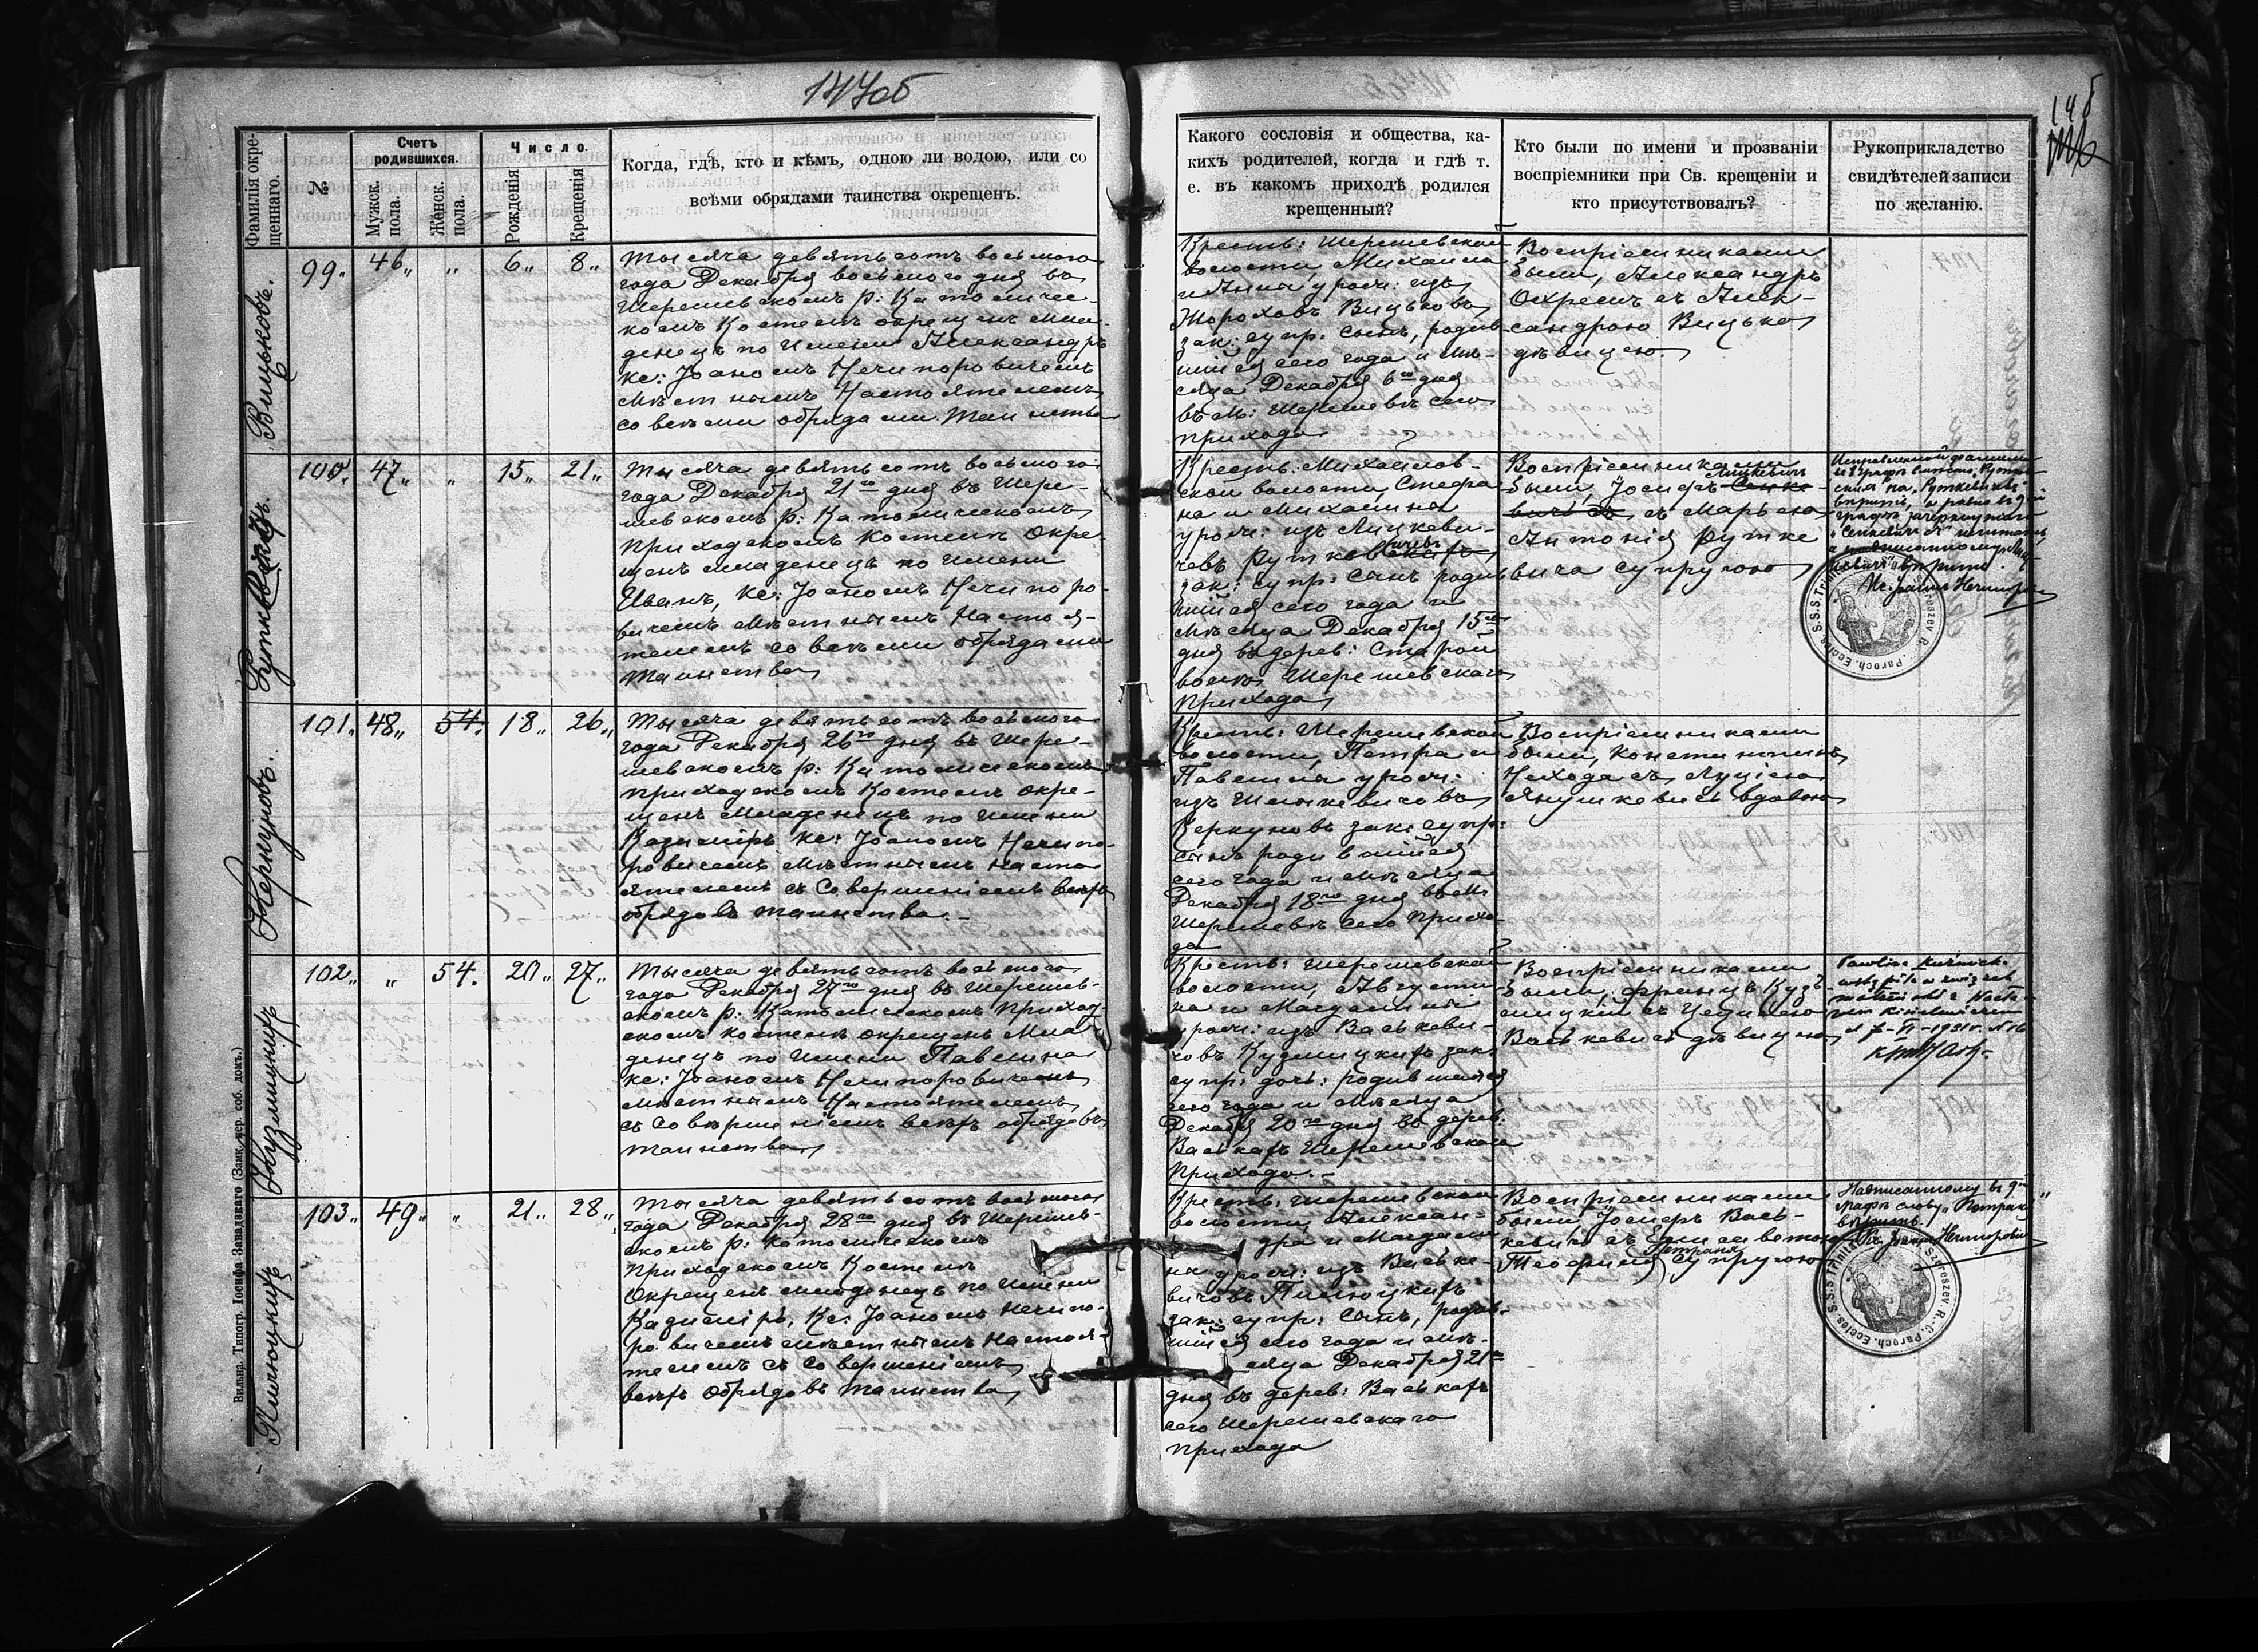 147об
148
Фамилія окре-
щеннаго.
№
Счетъ
родившихся.
Мужск.
пола.
Женск.
пола.
Число.
Рожденія
Крещенія
Когда, гдѣ, кто и кѣмъ, одною ли водою, или со
всѣми обрядами таинства окрещенъ.
Какого сословія и общества, ка-
кихъ родителей, когда и гдѣ т.
е. въ какомъ приходѣ родился
крещенный?
Кто были по имени и прозванію
воспріемники при Св. крещеніи и
кто присутствовалъ?
Рукоприкладство
свидѣтелей записи
по желанію.
Вицьковъ.
99. 46 „ „ 6 „ 8 „
Тысяча девятьсотъ восьмого
года Декабря восьмого дня въ
Шерешевскомъ р: Католичес-
комъ Костелѣ окрещенъ мла-
денецъ по имени Александръ
кс: Іоаномъ Нечипоровичемъ
мѣстнымъ Настоятелемъ
со всѣми обрядами таинства
Кресть: Шерешевской
волости, Михаила
и Анны урож: изъ
Шороховъ Вицьковъ
зак: супр: сынъ, родив-
шійся сего года и мѣ-
сяца Декабря 6го дня
въ м: Шерешевѣ сего
прихода
Воспріемниками
были, Александръ
Охремъ съ Алек-
сандрою Вицько
дѣвицею.
100. 47 „ „ 15 „ 21 „
Тысяча девятьсотъ восьмого
года Декабря 21го дня въ Шере-
шевскомъ р: Католическомъ
приходскомъ Костелѣ окре-
щенъ младенецъ по имени
Иванъ, кс: Іоаномъ Нечипоро-
вичемъ мѣстнымъ Настоя-
телемъ со всѣми обрядами
таинства
Кресть: Михайлов-
ской волости, Стефа
на и Михалины
урож: изъ Лицкеви-
чевъ Рутковскихъ
вичевъ
зак: супр: сынъ родив
шійся сего года и
мѣсяца Декабря 15го
дня въ дерев: Старой
волѣ Шерешевскаго
прихода
Воспріемниками
Лицкевичъ
были, Іосифъ Сенке-
вичъ съ съ Марьею
Антонія Рутке
вича супругою
Ecclesiae S.S. Trinitatis
Szereszev. R. C. Paroch.
Кернуновъ.
101. 48 „ 54. 18 „ 26 „
Тысяча девятьсотъ восьмого
года Декабря 26го дня въ Шере-
шевскомъ р: Католическомъ
приходскомъ Костелѣ окре-
щенъ младенецъ по имени
Казиміръ кс: Іоаномъ Нечипо-
ровичемъ мѣстнымъ насто
ятелемъ съ совершеніемъ всѣхъ
обрядовъ таинства.
Кресть: Шерешевской
волости, Петра и
Павелины урож:
Кернуновъ зак: супр:
сынъ родившійся
сего года и мѣсяца
Декабря 18го дня въ м:
Шерешевѣ сего прихо
да
Воспріемниками
были, Константинъ
Нехода съ Луціею
Янушкевичъ вдовою
Кузмицкихъ
102 „ „ 54. 20 „ 27 „
Тысяча девятьсотъ восьмого
года Декабря 27го дня въ Шерешев-
скомъ р: Католическомъ Приход-
скомъ костелѣ окрещенъ мла-
денецъ по имени Павелина
кс: Іоаномъ Нечипоровичемъ
мѣстнымъ Настоятелемъ,
съ совершеніемъ всѣхъ обрядовъ
таинства
Кресть: Шерешевской
волости, Августи
на и Магдалины
урож: изъ Васькеви-
човъ Кузмицкихъ зак:
супр: дочь: родившаяся
сего года и мѣсяца
Декабря 20го дня въ дерев:
Васькахъ Шерешевскаго
прихода.
Воспріемниками
были, Францъ Кузь-
мицкій съ Цециліею
Васькевичъ дѣвицею
103 „ 49 „ „ 21 „ 28 „
Тысяча девятьсотъ восьмого
года Декабря 28го дня въ Шерешев-
скомъ р: Католическомъ
приходскомъ Костелѣ
окрещенъ младенецъ по имени
Казиміръ, кс: Іоаномъ Нечипо-
ровичемъ мѣстнымъ настоя-
телемъ съ совершеніемъ
всѣхъ обрядовъ таинства
Кресть: Шерешевской
волости, Алексан-
дра и Магдали
ны урож: изъ Ваське-
вичовъ
зак: супр: сынъ, родив-
шійся сего года и мѣ-
сяца Декабря 21го
дня въ дерев: Васькахъ
сего Шерешевскаго
прихода
Воспріемниками
были Іосифъ Вась-
кевичъ съ Елисаветою
Теофиля супругою
Ecclesiae S.S. Trinitatis
Szereszev. R. C. Paroch.
Вильна. Типогр. Іосифа Завадзкаго (Замк. пер. соб. домъ.)